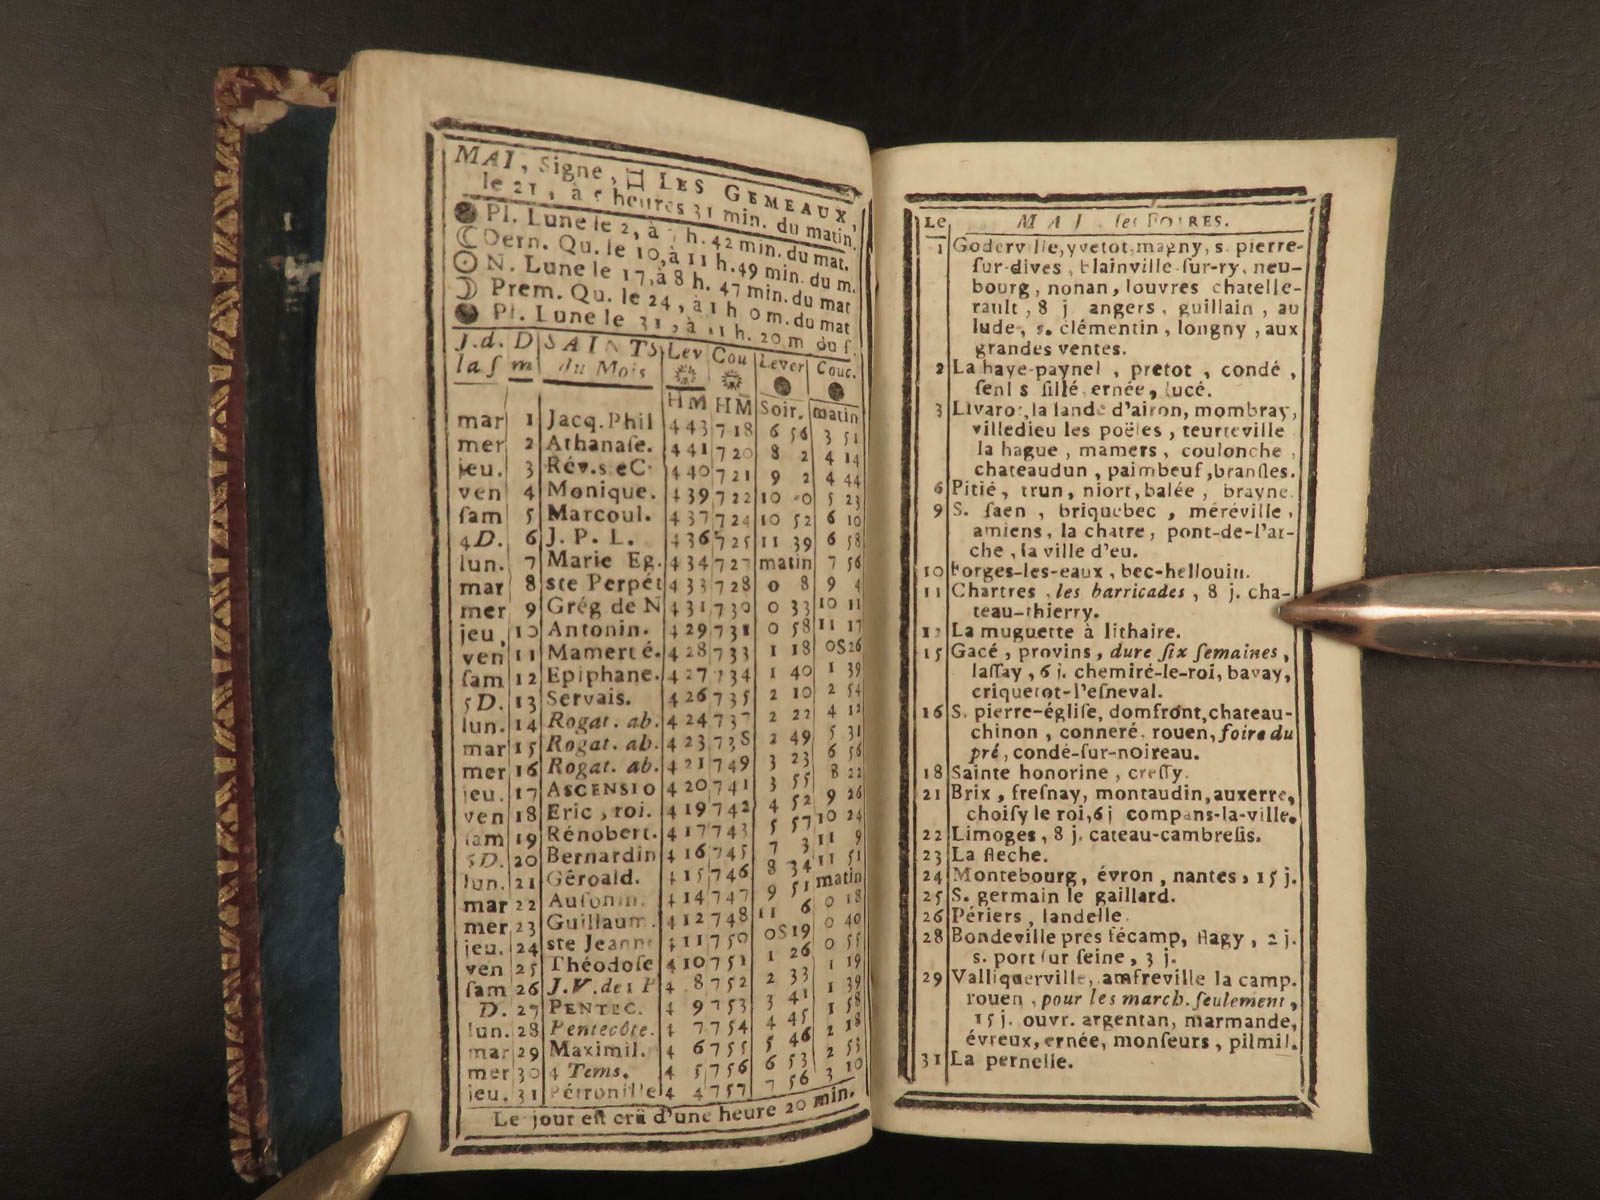 MAI, Signe, ♊ LES GEMEAUX,
le 21, à 5 heures 31 min. du matin.
Pl. Lune le 2, à 7 h. 42 min. du mat.
Dern. Qu. le 10, à 11 h. 49 min. du m.
N. Lune le 17, à 8 h. 47 min. du mat
Prem. Qu. le 24, à 1 h 0 m. du mat
Pl. Lune le 31, à 11 h. 20 m du ſ.
J.d. D SAINTS Lev Cou Lever Couc.
laſ m du Mois
HM HM Soir. matin
mar 1 Jacq. Phil 4 43 7 18 6 56 3 51
mer 2 Athanaſe. 4 41 7 20 8 2 4 14
jeu. 3 Rév. ſteC 4 40 7 21 9 2 4 44
ven 4 Monique. 4 39 7 22 10 0 5 23
ſam 5 Marcoul. 4 37 7 24 10 52 6 10
4D. 6 J. P. L. 4 36 7 25 11 39 6 58
lun. 7 Marie Eg. 4 34 7 27 matin 7 56
mar 8 ste Perpét 4 33 7 28 0 8 9 4
mer 9 Grég de N 4 31 7 30 0 33 10 11
jeu, 10 Antonin. 4 29 7 31 0 58 11 17
ven 11 Mamert é. 4 28 7 33 1 18 0S26
ſam 12 Epiphane. 4 27 7 34 1 40 1 39
5D. 13 Servais. 4 26 7 35 2 10 2 54
lun. 14 Rogat. ab. 4 24 7 37 2 22 4 12
mar 15 Rogat. ab. 4 23 7 38 2 49 5 31
mer 16 Rogat. ab. 4 21 7 49 3 23 6 56
jeu. 17 ASCENSIO 4 20 7 41 3 55 8 22
ven 18 Eric, roi. 4 19 7 42 4 52 9 26
ſam 19 Rénobert. 4 17 7 43 5 57 10 24
5D. 20 Bernardin 4 16 7 45 7 3 11 9
lun. 21 Gêroald. 4 15 7 46 8 34 11 51
mar 22 Auſonin. 4 14 7 47 9 51 matin
mer 23 Guillaum. 4 12 7 48 11 6 0 18
jeu. 24 ste Jeann 4 11 7 50 0S19 0 40
ven 25 Théodoſe 4 10 7 51 1 26 0 55
ſam 26 J.V. de 1 P 4 8 7 52 2 33 1 19
D. 27 PENTEC. 4 9 7 53 3 41 1 39
lun. 28 Pentecôte. 4 7 7 54 4 45 1 58
mar 29 Maximil. 4 6 7 55 5 46 2 18
mer 30 4 Tems. 4 5 7 56 6 53 2 53
jeu. 31 Pétronille 4 4 7 57 7 56 3 10
Le jour eſt crû d'une heure 20 min.
Le MAI, ſes FOIRES.
1 Goderville, yvetot, magny, s. pierre-
ſur-dives, blainville-ſur-ry, neu-
bourg, nonan, louvres chatelle-
rault, 8 j angers, guillain, au
lude, s. clémentin, longny, aux
grandes ventes.
2 La haye-paynel, pretot, condé,
ſenl s ſillé, ernée, lucé.
3 Livarot, la lande d'airon, mombray,
villedieu les poëles, teurteville
la hague, mamers, coulonche,
chateaudun, paimbeuf, branſles.
6 Pitié, trun, niort, balée, brayne.
9 S. ſaen, briquebec, méréville,
amiens, la chatre, pont-de-l'ar-
che, la ville d'eu.
10 Forges-les-eaux, bec-hellouin.
11 Chartres, les barricades, 8 j. cha-
teau-thierry.
12 La muguette à lithaire.
15 Gacé, provins, dure ſix ſemaines,
laſſay, 6 j. chemiré-le-roi, bavay,
criquetot-l'eſneval.
16 S. pierre-égliſe, domfront, chateau-
chinon, conneré, rouen, foire du
pré, condé-ſur-noireau.
18 Sainte honorine, creſſy.
21 Brix, freſnay, montaudin, auxerre,
choiſy le roi, 6 j compans-la-ville.
22 Limoges, 8 j. cateau-cambreſis.
23 La fleche.
24 Montebourg, évron, nantes, 15 j.
25 S. germain le gaillard.
26 Périers, landelle.
28 Bondeville pres fécamp, flagy, 2 j.
s. port ſur ſeine, 3 j.
29 Valliquerville, amfreville la camp.
rouen, pour les march. ſeulement,
15 j. ouvr. argentan, marmande,
évreux, ernée, monſeurs, pilmil.
31 La pernelle.